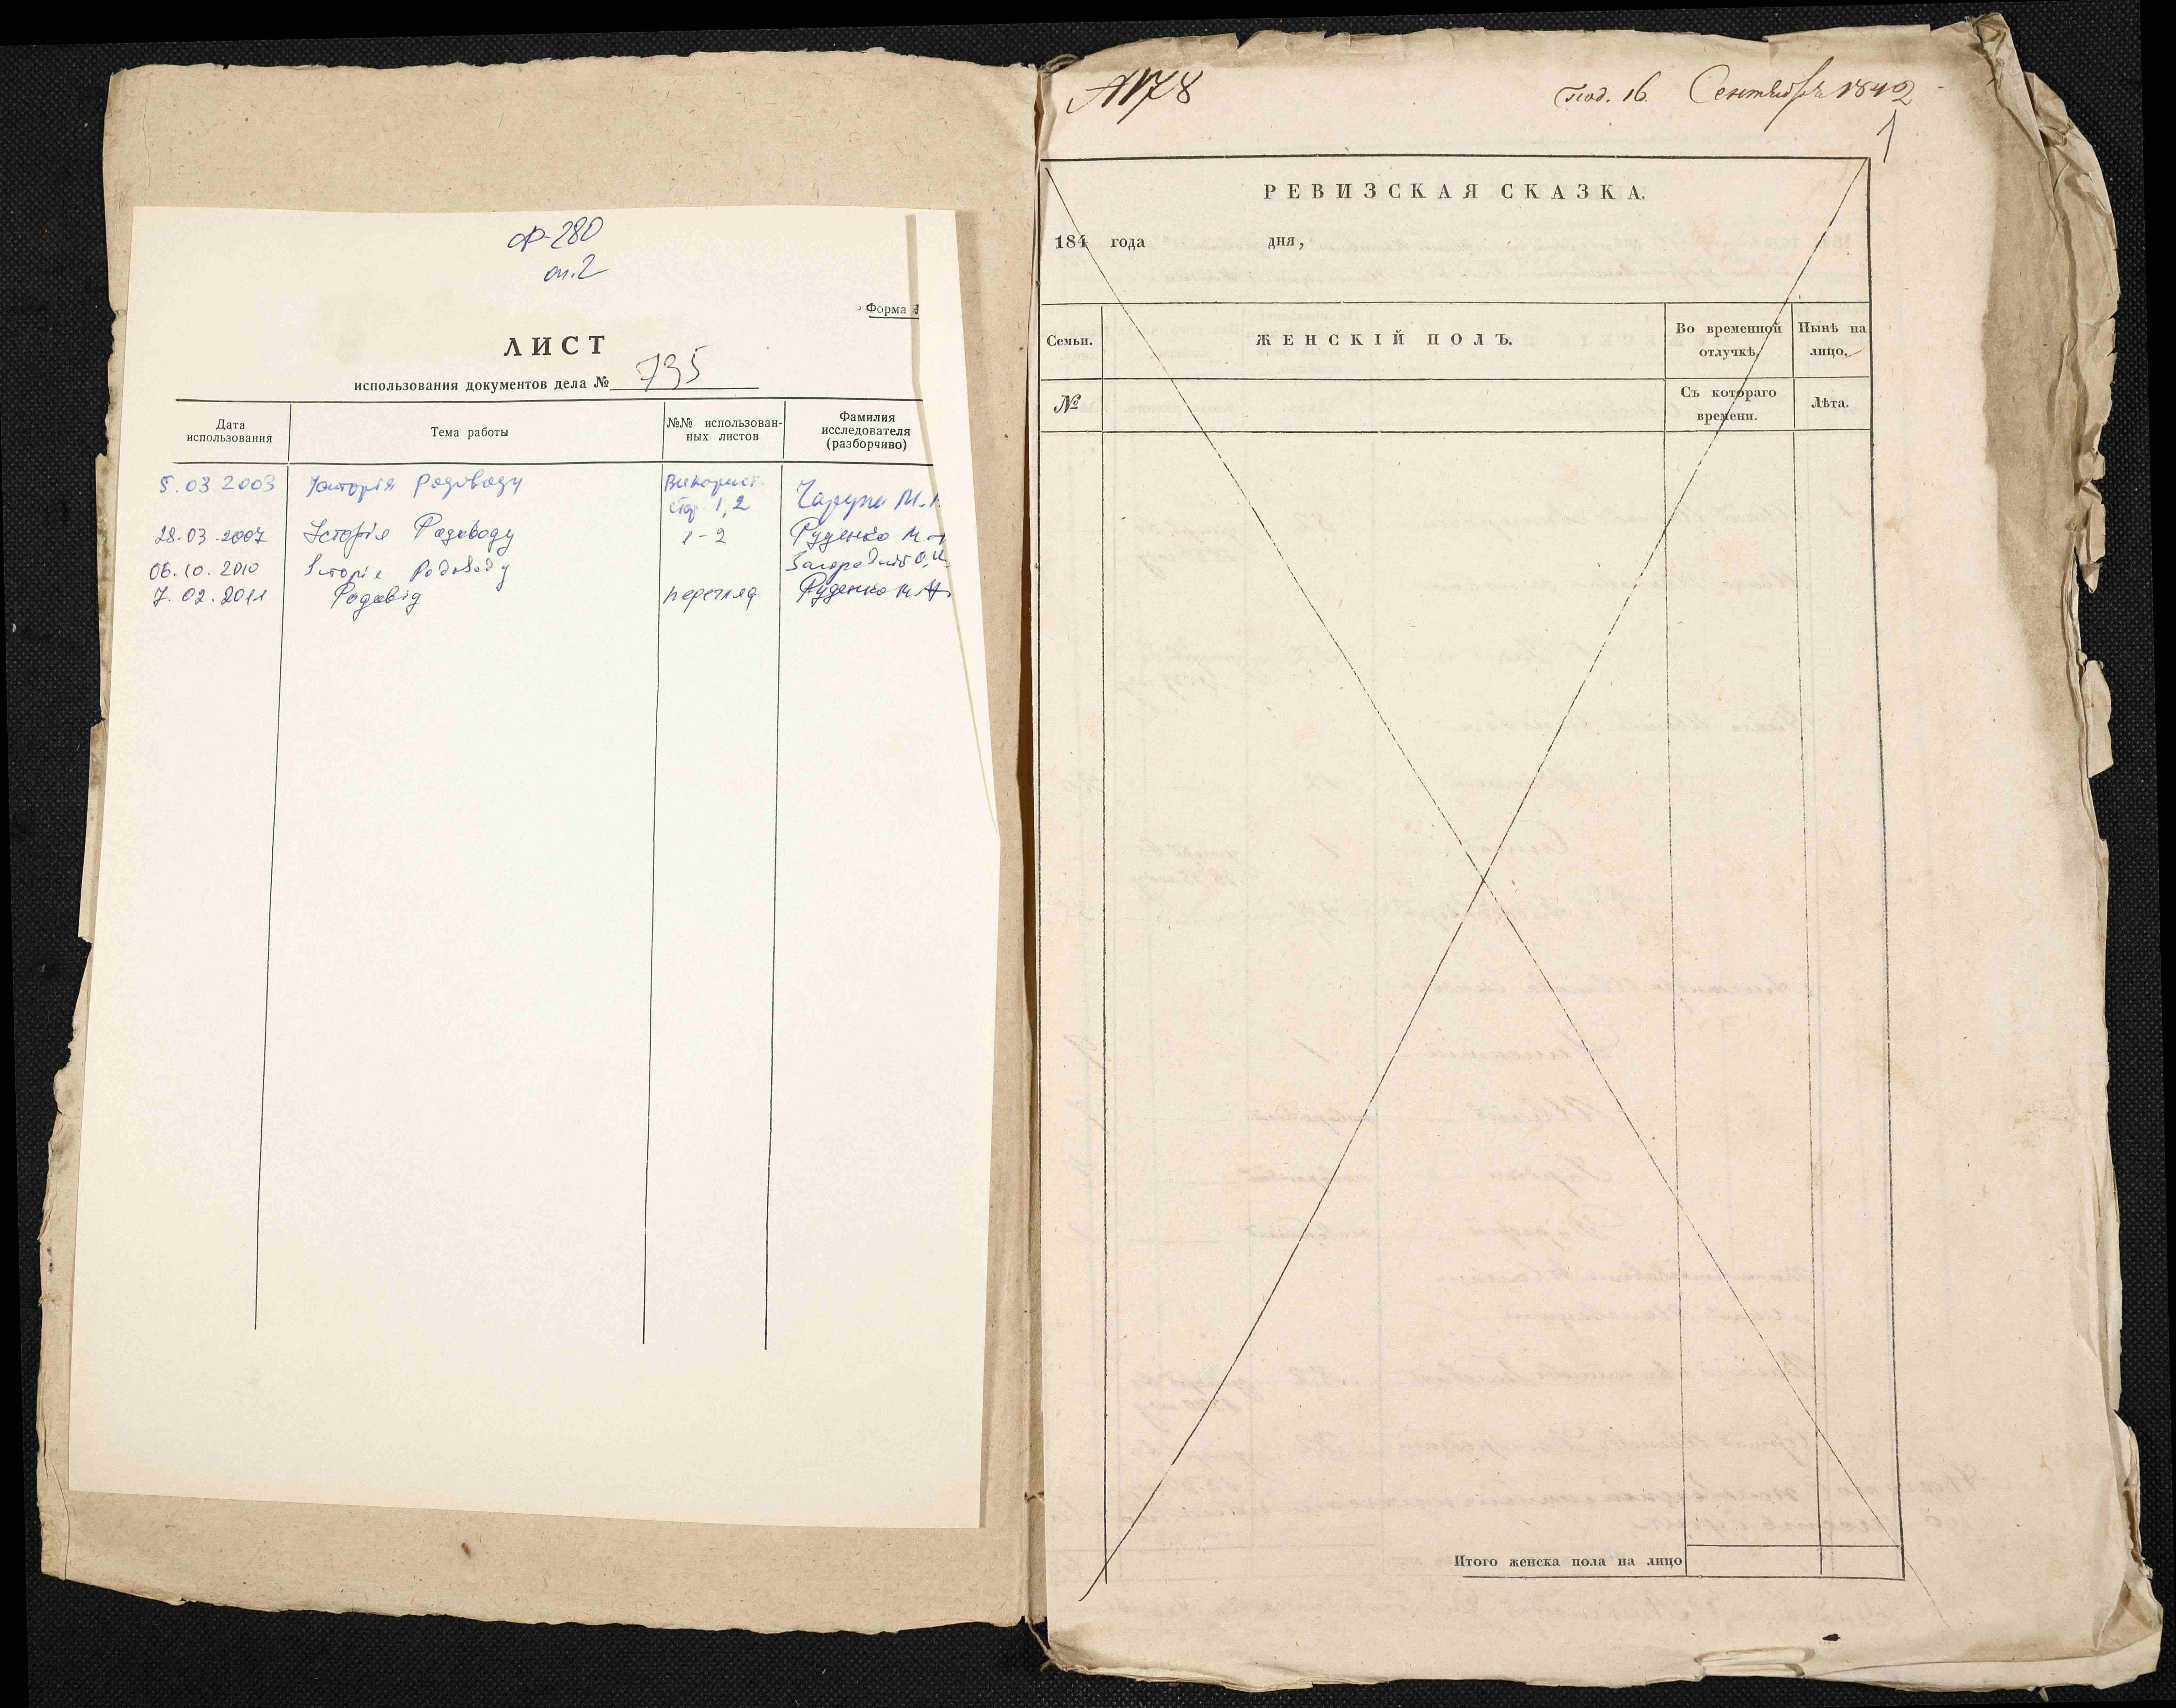 ф-280
оп.2
Форма
ЛИСТ
использования документов дела № 795
Дата использования
Тема работы
№№ использован-
ных листов
Фамилия
исследователя
(разборчиво)
5.03.2003 Історія Родоводу Використ.
стор. 1, 2
28.03.2007 Історія Родоводу 1-2 Руденко М
06.10.2010 Історія Родоводу
7.02.2011 Родовід перегляд Руденко М.
№78
Под. 16 Сентября 1842
1
РЕВИЗСКАЯ СКАЗКА.
184 года дня,
Семьи.
ЖЕНСКІЙ ПОЛЪ.
Во временной
отлучкѣ,
Нынѣ на
лицо.
№
Съ котораго
времени.
Лѣта.
Итого женска пола на лицо